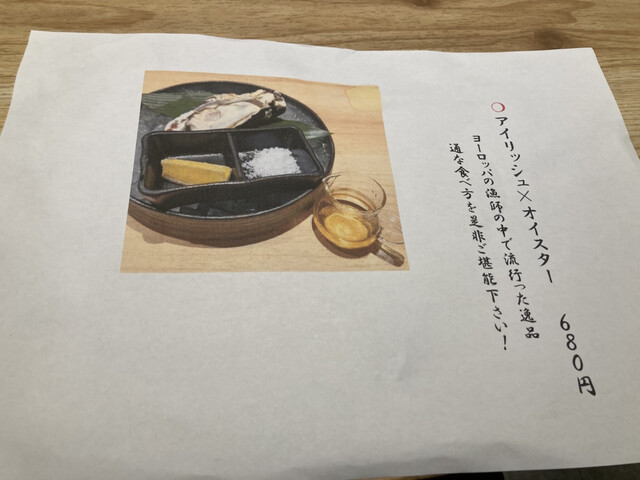 ○アイリッシュ×オイスター 680円
ヨーロッパの漁師の中で流行った逸品
通な食べ方を是非ご堪能下さい！